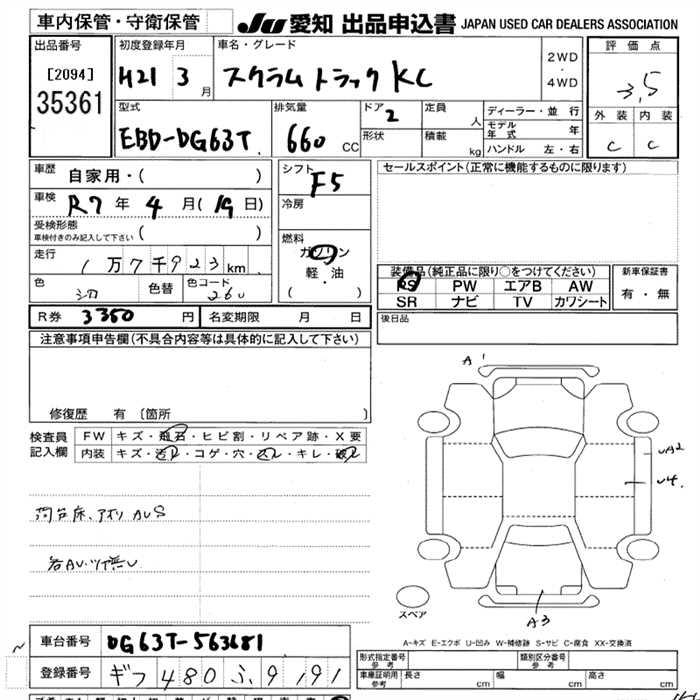 車内保管・守衛保管
JU 愛知 出品申込書 JAPAN USED CAR DEALERS ASSOCIATION
出品番号
[2094]
35361
初度登録年月
H21 3月
車名・グレード
スクラムトラック KC
2WD
・
4WD
評価点
3.5
外装 内装
C C
型式
EBD-DG63T
排気量
660 CC
ドア 2
形状
定員 人
積載 kg
ディーラー・並行
モデル年式 年
ハンドル 左・右
車歴 自家用・( )
車検 R7年 4月(19日)
受検形態
車検付きのみ記入して下さい ( )
走行 1万7千923km
色 シロ 色替 色コード 26U
R券 3350円 名変期限 月 日
シフト F5
冷房
燃料
ガソリン
軽・油
( )
セールスポイント(正常に機能するものに限ります)
装備品(純正品に限り○をつけてください)
PS PW エアB AW
SR ナビ TV カワシート
新車保証書
有・無
後日品
注意事項申告欄(不具合内容等は具体的に記入して下さい)
修復歴 有 〔箇所 〕
検査員記入欄
FW キズ・飛石・ヒビ割・リペア跡・X要
内装 キズ・汚レ・コゲ・穴・スレ・キレ・破レ
荷台床、アオリ AUS
各AU・ツヤ無シ
A1
UA2
U4
A3
スペア
A-キズ E-エクボ U-凹み W-補修跡 S-サビ C-腐食 XX-交換済
車台番号 DG63T-563681
登録番号 ギフ 480 ふ 9191
形式指定番号 参考
類別区分番号 参考
車庫証明用 参考 長さ cm 幅 cm 高さ cm